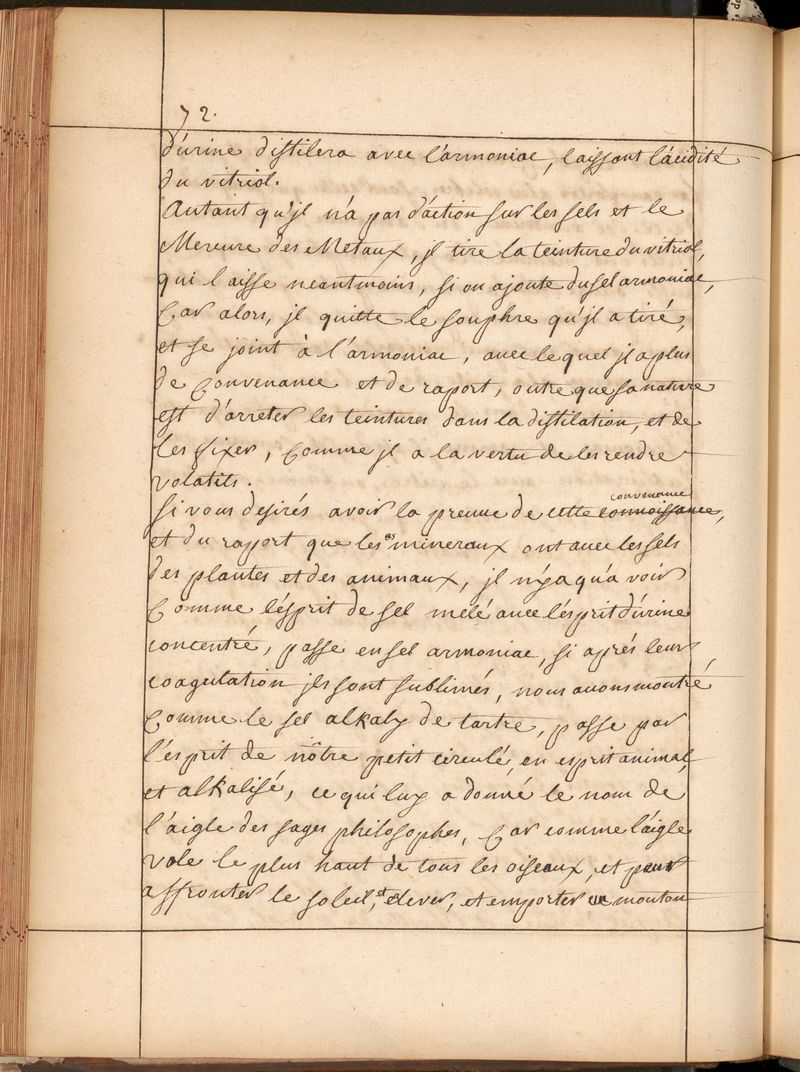 72.
d'urine distilera avec l'armoniac, laissant l'acidité
du vitriol.
Autant qu'jl n'a pas d'action sur les sels et le
Mercure des Metaux, jl tire la teinture du vitriol,
qui l'aisse neantmoins, si on ajoute du sel armoniac,
Car alors, jl quitte le souphre qu'jl a tiré,
et se joint à l'armoniac, avec le quel jl a plus
de Convenance et de raport, outre que sa nature
est d'arreter les teintures dans la distilation, et de
les fixer, Comme jl a la vertu de les rendre
volatils.
Si vous desirés avoir la preuve de cette convenance connoissance,
et du raport que les mineraux ont avec les sels
des plantes et des animaux, jl n'y a qu'a voir
Comme l'esprit de sel mêlé avec l'esprit d'urine
concentré, passe en sel armoniac, si aprés leur
coagulation jls sont sublimés, nous avons montré
Comme le sel alkaly de tartre, passe par
l'esprit de nôtre petit circulé, en esprit animal,
et alkalisé, ce qui luy a donné le nom de
l'aigle des sages philosophes, Car comme l'aigle
vole le plus haut de tous les oiseaux, et peut
affronter le soleil, et elever, et emporter un mouton